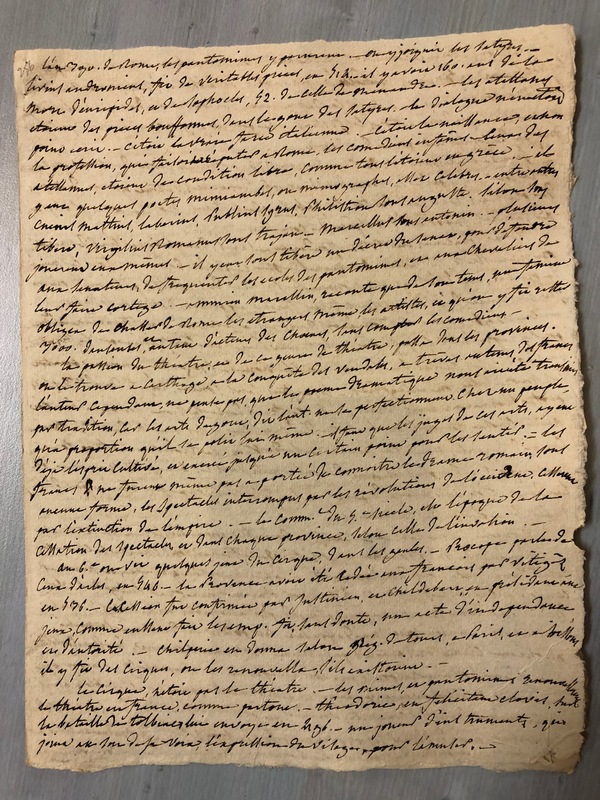 l'an 390. de Rome, les pantomimes y parurent. — on y joignit les satyres. —
livius andronicus, fit de véritables pieces, en 514. il y avoit 160. ans de la
mort d'euripides, et de sophocle, 52. de celle de menandre. — les atellanes
étoient des pieces bouffonnes, dans le genre des satyres. — le dialogue
point écrit. — c'étoit la vraie farce italienne. — c'étoit la naissance, et non
la profession, qui faisoit reputer à Rome, les comédiens infâmes. — ceux des
atellanes, étoient de condition libre, comme tous l'étoient en grèce. — il
y eut quelques poetes mimiambes, ou mimographes, assez celebres. — entr'autres
cneius mattius, laberius, Publius Syrus, Philistion sous auguste. Silon sous
tibere, Virgilius Romanus sous trajan. — Marcellus sous antonin. — plusieurs
jouerent eux mêmes. — il y eut sous tibère un décret du Senat, pour défendre
aux senateurs, de frequenter les ecoles des pantomimes, et aux chevaliers de
leur faire cortege. — ammien marcellin, raconte que de son tems, une famine
obligea de chasser de Rome les etrangers, même les artistes, et qu'on y fit rester
3000. danseuses, et autant d'acteurs des choeurs, sans compter les comédiens. —
la passion du théatre, et de ce genre de théatre, passa dans les provinces.
on le trouve à Carthage, à la conquête des vandales, à treves au tems des francs
l'auteur cependant, ne pense pas que le poeme dramatique nous ait été transmis
par tradition, car les arts de gout, dit il, ne se perfectionnent chez un peuple,
qu'à proportion qu'il se polit lui même. — il faut que les juges de ces arts, ayent
déja l'esprit cultivé, et exercé jusqu'à un certain point pour les sentir. — les
francs ne furent même pas à portée de connoitre le drame romain, sous
aucune forme, les Spectacles interrompus par les révolutions de l'occident, cesserent
par l'extinction de l'empire. — le comm.t du 5.e siecle, est l'époque de la
cessation des spectacles, et dans chaque province, selon celle de l'invasion. —
au 6.e on vit quelques jeux du Cirque, dans les gaules. — Procope parle de
ceux d'arles, en 546. — la Provence avoit été cédée aux francs par vitigès
en 536. — cession fut confirmée par Justinien, et Childebert, en présidant aux
jeux, comme eussent fait les emp. fit, sans doute, un acte d'independance
et d'autorité. — chilperic en donna selon grég. de tours, à Paris, et à Soissons
il y fit des cirques, ou les renouvella, s'ils existoient. —
le Cirque, n'étoit pas le théatre. — les mimes, et pantomimes
le théatre en france, comme partout. — theodoric, en felicitant clovis, sur
la bataille de tolbiac, lui envoye en 496. — un joueur d'instruments, qui
joint au son de sa voix, l'expression du visage, pour l'émuler. —